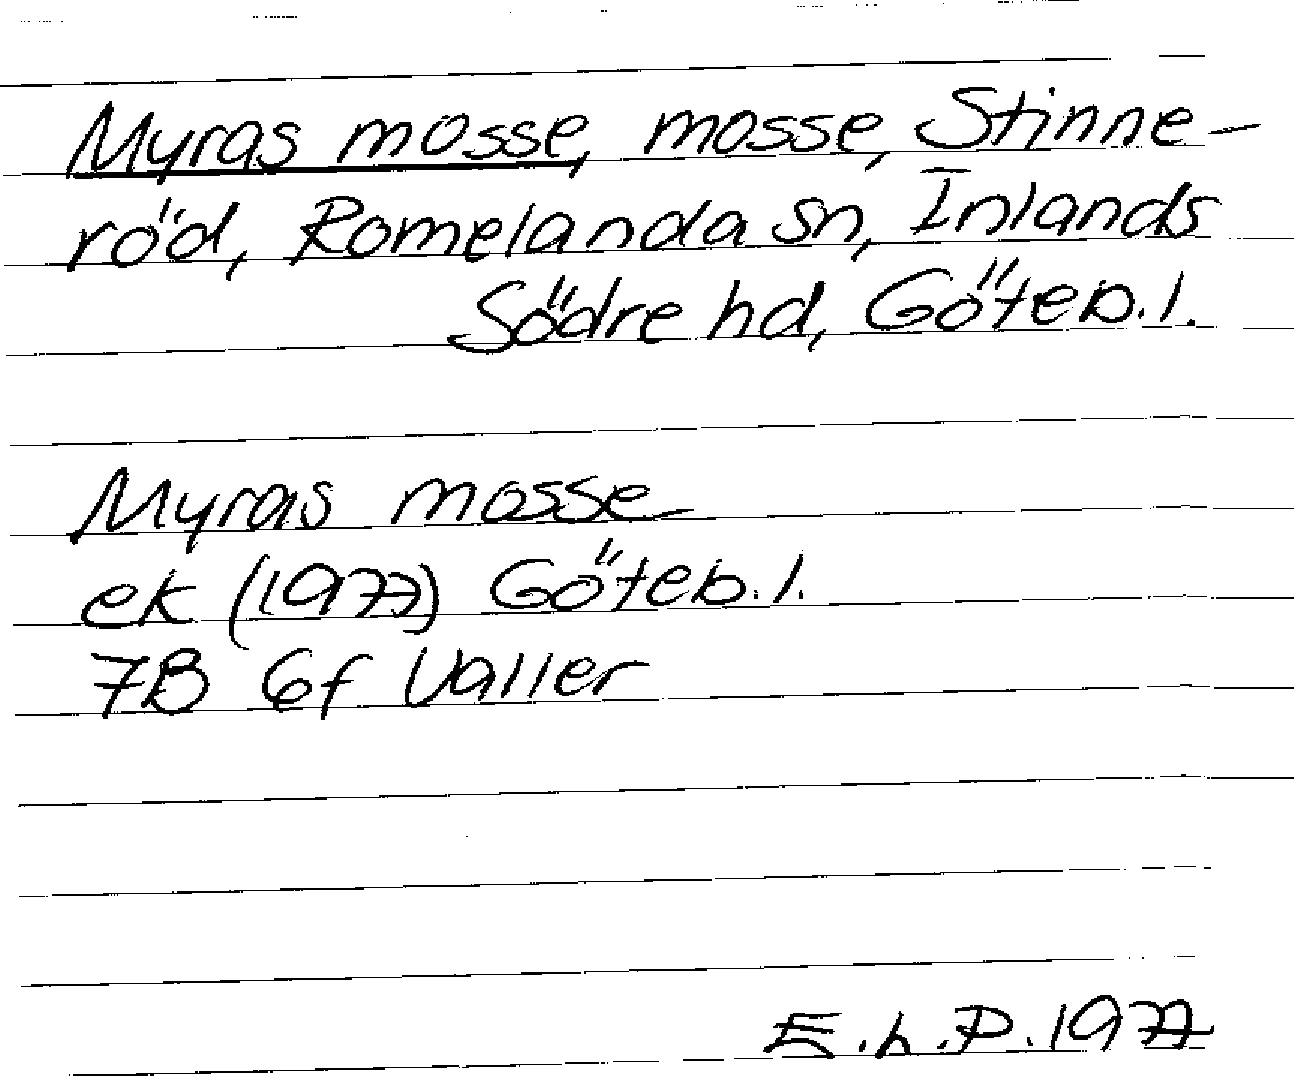 Myras mosse, mosse, Stinne-
röd, Romelanda sn, Inlands
Södre hd, Göteb. l.
Myras mosse
ek (1977) Göteb. l.
7B 6f Valler
E.h.P. 1977